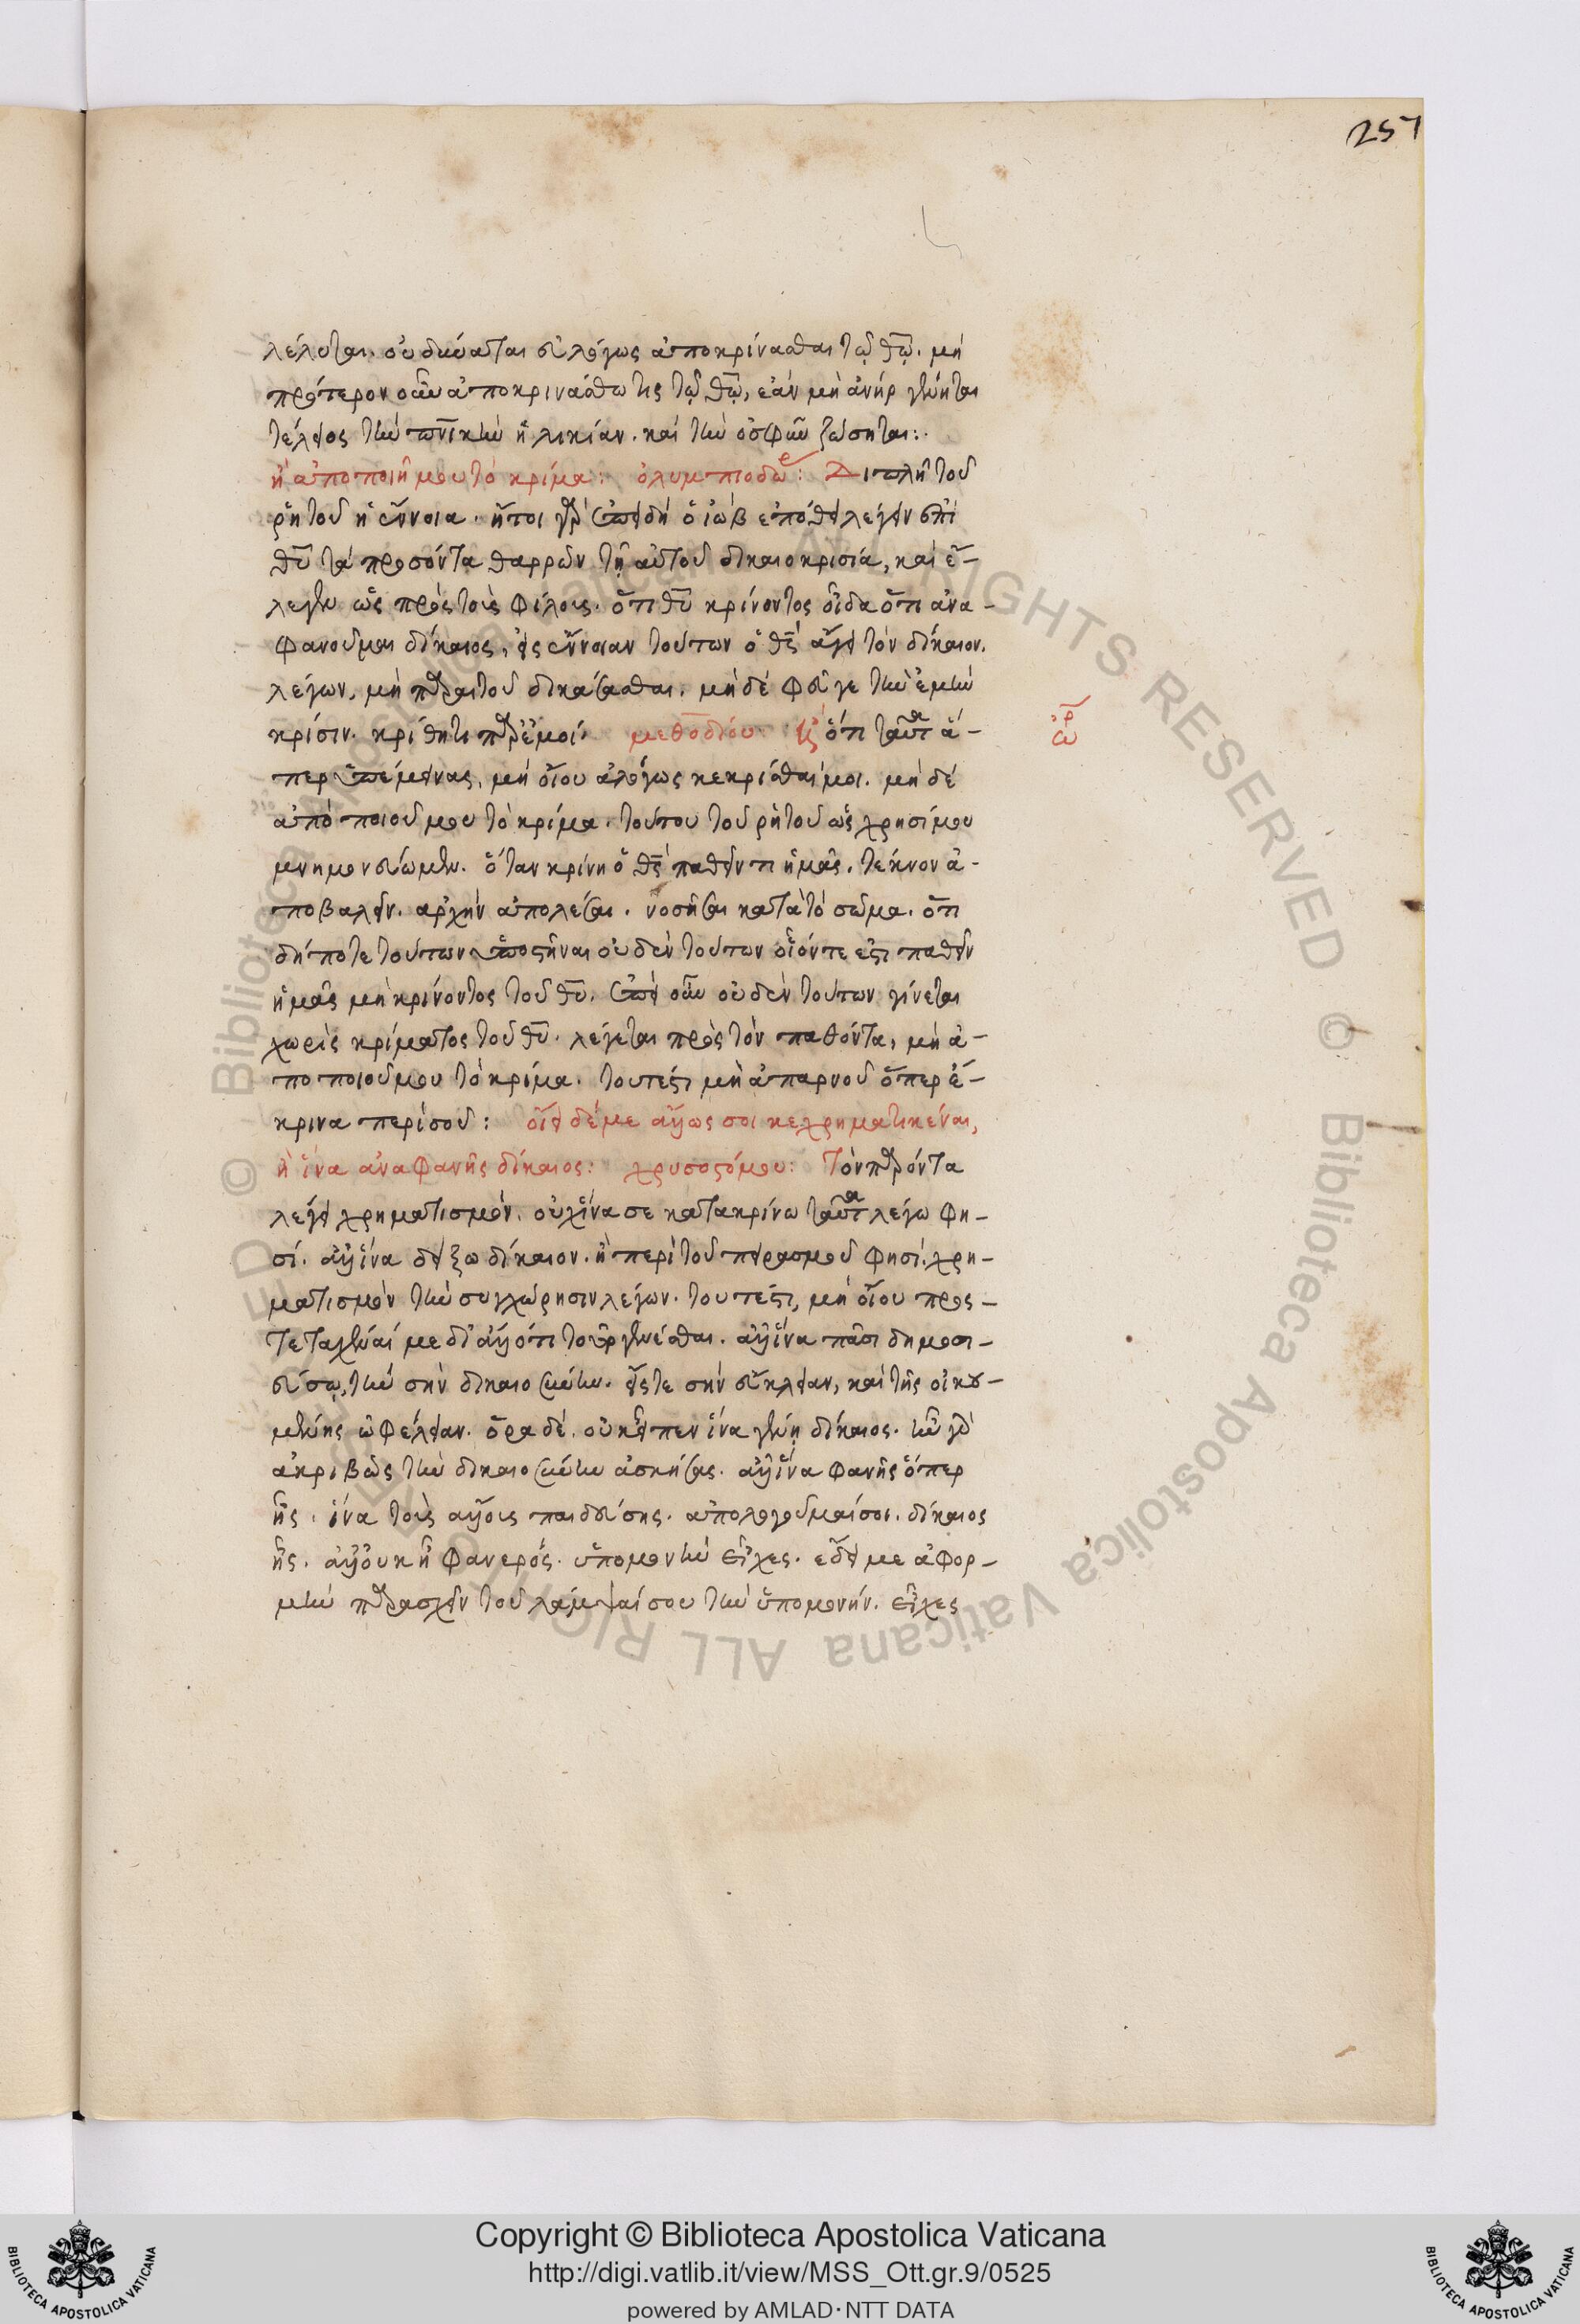 257
λέλυται. οὐ δύναται εὐλόγως ἀποκρίνασθαι τῷ θῷ. μὴ
πρότερον οὖν ἀποκρινάσθω τις τῷ θῷ, ἐὰν μὴ ἀνὴρ γένηται
τέλειος τὴν πνικὴν ἡλικίαν. καὶ τὴν ὀσφῦν ζώσηται:
ἢ ἀποποιῇ μου τὸ κρίμα: ὀλυμπιοδώρ: Διπλῆ τοῦ
ῥητοῦ ἡ ἔννοια. ἤτοι γὰρ ἐπειδὴ ὁ ἰὼβ ἐπόθει λέγειν ἐπὶ
θυ τὰ προσόντα θαρρῶν τῇ αὐτοῦ δικαιοκρισία, καὶ ἔ-
λεγεν ὡς πρὸς τοὺς φίλους. ὅτι θυ κρίνοντος οἶδα ὅτι ἀνα-
φανοῦμαι δίκαιος, εἰς ἔννοιαν τούτων ὁ θς ἄγει τὸν δίκαιον.
λέγων, μὴ παραιτοῦ δικάσασθαι. μὴ δὲ φεῦγε τὴν ἐμὴν
κρίσιν. κρίθητι παρ' ἐμοί. μεθοδίου ὅτι ταῦτα ἅ-
ὡρ
περ ὑπέμεινας, μὴ οἴου ἀλόγως κεκρίσθαι μοι. μὴ δὲ
ἀποποιοῦ μου τὸ κρίμα. τούτου τοῦ ῥητοῦ ὡς χρησίμου
μνημονεύωμεν. ὅταν κρίνη ὁ θς παθεῖν τι ἡμᾶς. τέκνον ἀ-
ποβαλεῖν. ἀρχὴν ἀπολέσαι. νοσῆσαι κατὰ τὸ σῶμα. ὅτι
δήποτε τούτων ὑποστῆναι οὐδὲν τούτων οἷόν τε ἐστι παθεῖν
ἡμᾶς μὴ κρίνοντος τοῦ θυ. ἐπεὶ οὖν οὐδὲν τούτων γίνεται
χωρὶς κρίματος τοῦ θυ. λέγεται πρὸς τὸν παθόντα, μὴ ἀ-
ποποιοῦ μου τὸ κρίμα. τουτέστι μὴ ἀπαρνοῦ ὅπερ ἔ-
κρινα περί σου: οἴει δέ με ἄλλως σοι κεχρηματικέναι,
ἢ ἵνα ἀναφανῆς δίκαιος: χρυσοστόμου: Τὸν παρόντα
λέγει χρηματισμόν. οὐχ ἵνα σε κατακρίνω ταῦτα λέγω φη-
σί. ἀλλ' ἵνα δείξω δίκαιον. ἢ περὶ τοῦ πειρασμοῦ φησί. χρη-
ματισμὸν τὴν συγχώρησιν λέγων. τουτέστι, μὴ οἴου προσ-
τεταχέναι με δι' ἄλλο τι τοῦτο γενέσθαι. ἀλλ' ἵνα πᾶσι δημοσι-
εύσω, τὴν σὴν δικαιοσύνην. εἴς τε σὴν εὔκλειαν, καὶ τῆς οἰκου-
μένης ὠφέλειαν. ὅρα δέ. οὐκ εἶπεν ἵνα γένη δίκαιος. ἦν γὰρ
ἀκριβῶς τὴν δικαιοσύνην ἀσκήσας. ἀλλ' ἵνα φανῆς ὅπερ
ἦς. ἵνα τοὺς ἄλλους παιδεύσης. ἀπολογοῦμαί σοι. δίκαιος
ἦς. ἀλλ' οὐκ ἦ φανερός. ὑπομονὴν εἶχες. ἔδει με ἀφορ-
μὴν παρασχεῖν τοῦ λάμψαί σου τὴν ὑπομονήν. εἶχες
Copyright © Biblioteca Apostolica Vaticana
http://digi.vatlib.it/view/MSS_Ott.gr.9/0525
powered by AMLAD·NTT DATA